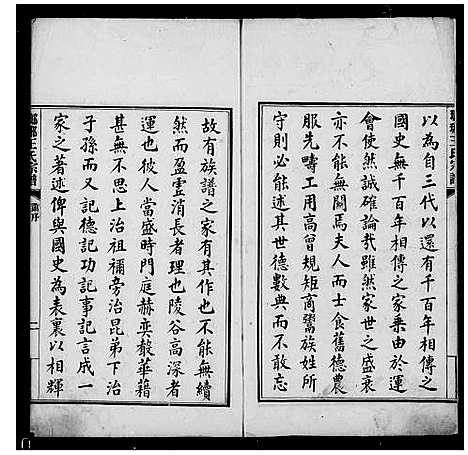 以為自三代以還有千百年相傳之
國史無千百年相傳之家乗由於運
會使然誠確論㢤雖然家世之盛衰
亦不能無關焉夫人而士食舊德農
服先疇工用高曾規矩商鬻族姓所
守則必能述其世德數典而不敢忘
故有族譜之家有其作也不能無續
然而盈虛消長者理也陵谷高深者
運也彼人當盛時門庭赫奕轂華藉
甚無不思上治祖禰旁治昆弟下治
子孫而一記德記功記事記言成一
家之著述俾與國史為表裏以相輝
瑯琊王氏宗譜
舊序
二
瑯琊王氏宗譜